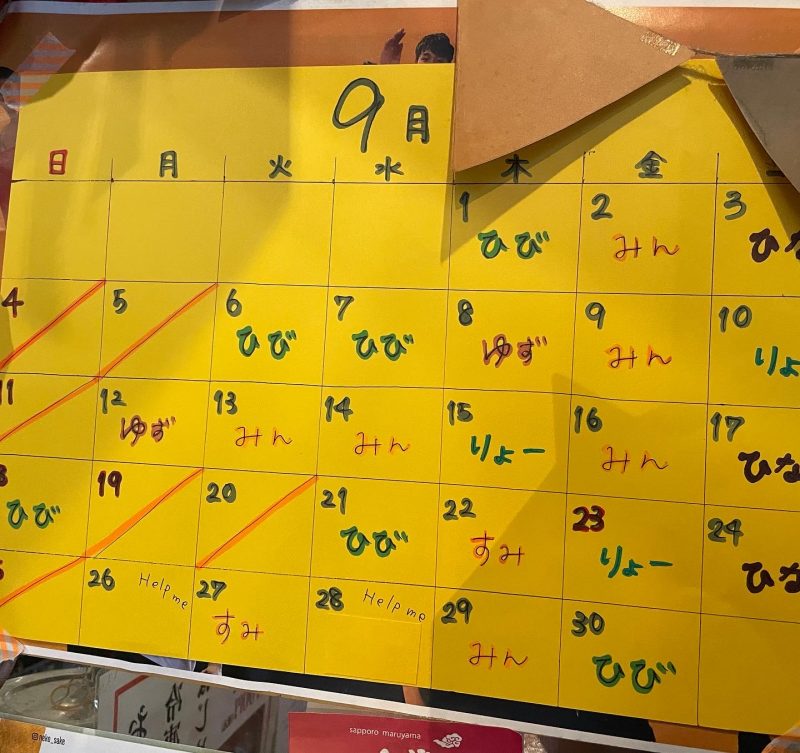 9月
日 月 火 水 木 金
1 2 3
ひび みん ひな
4 5 6 7 8 9 10
ひび ひび ゆず みん りょ
11 12 13 14 15 16 17
ゆず みん みん りょー みん ひな
19 20 21 22 23 24
ひび ひび すみ りょー ひな
26 Help me 27 28 Help me 29 30
すみ みん ひび
@neko_sake
sapporo maruyama